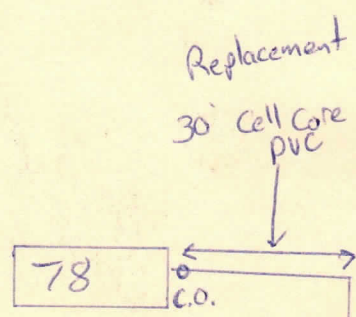 Replacement
30' Cell Core
PVC
78
C.O.